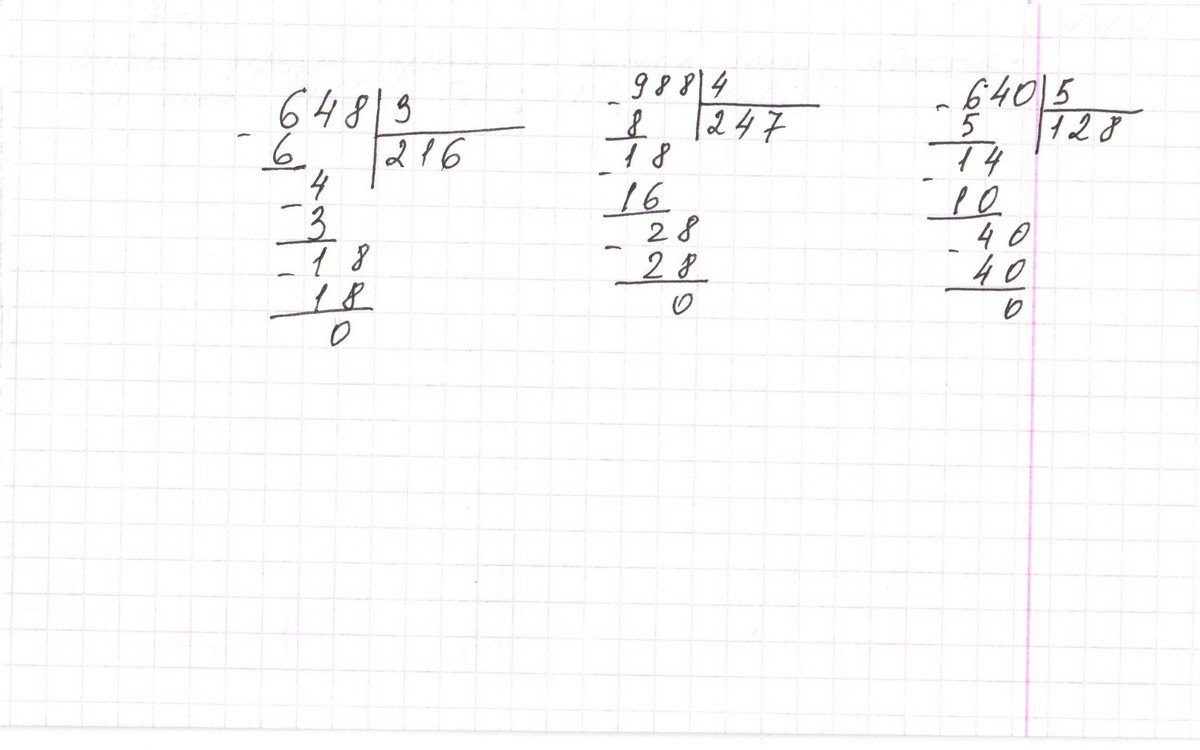 - 648 | 3
6 | 216
- 4
3
- 18
18
0
- 988 | 4
8 | 247
- 18
16
- 28
28
0
- 640 | 5
5 | 128
- 14
10
- 40
40
0